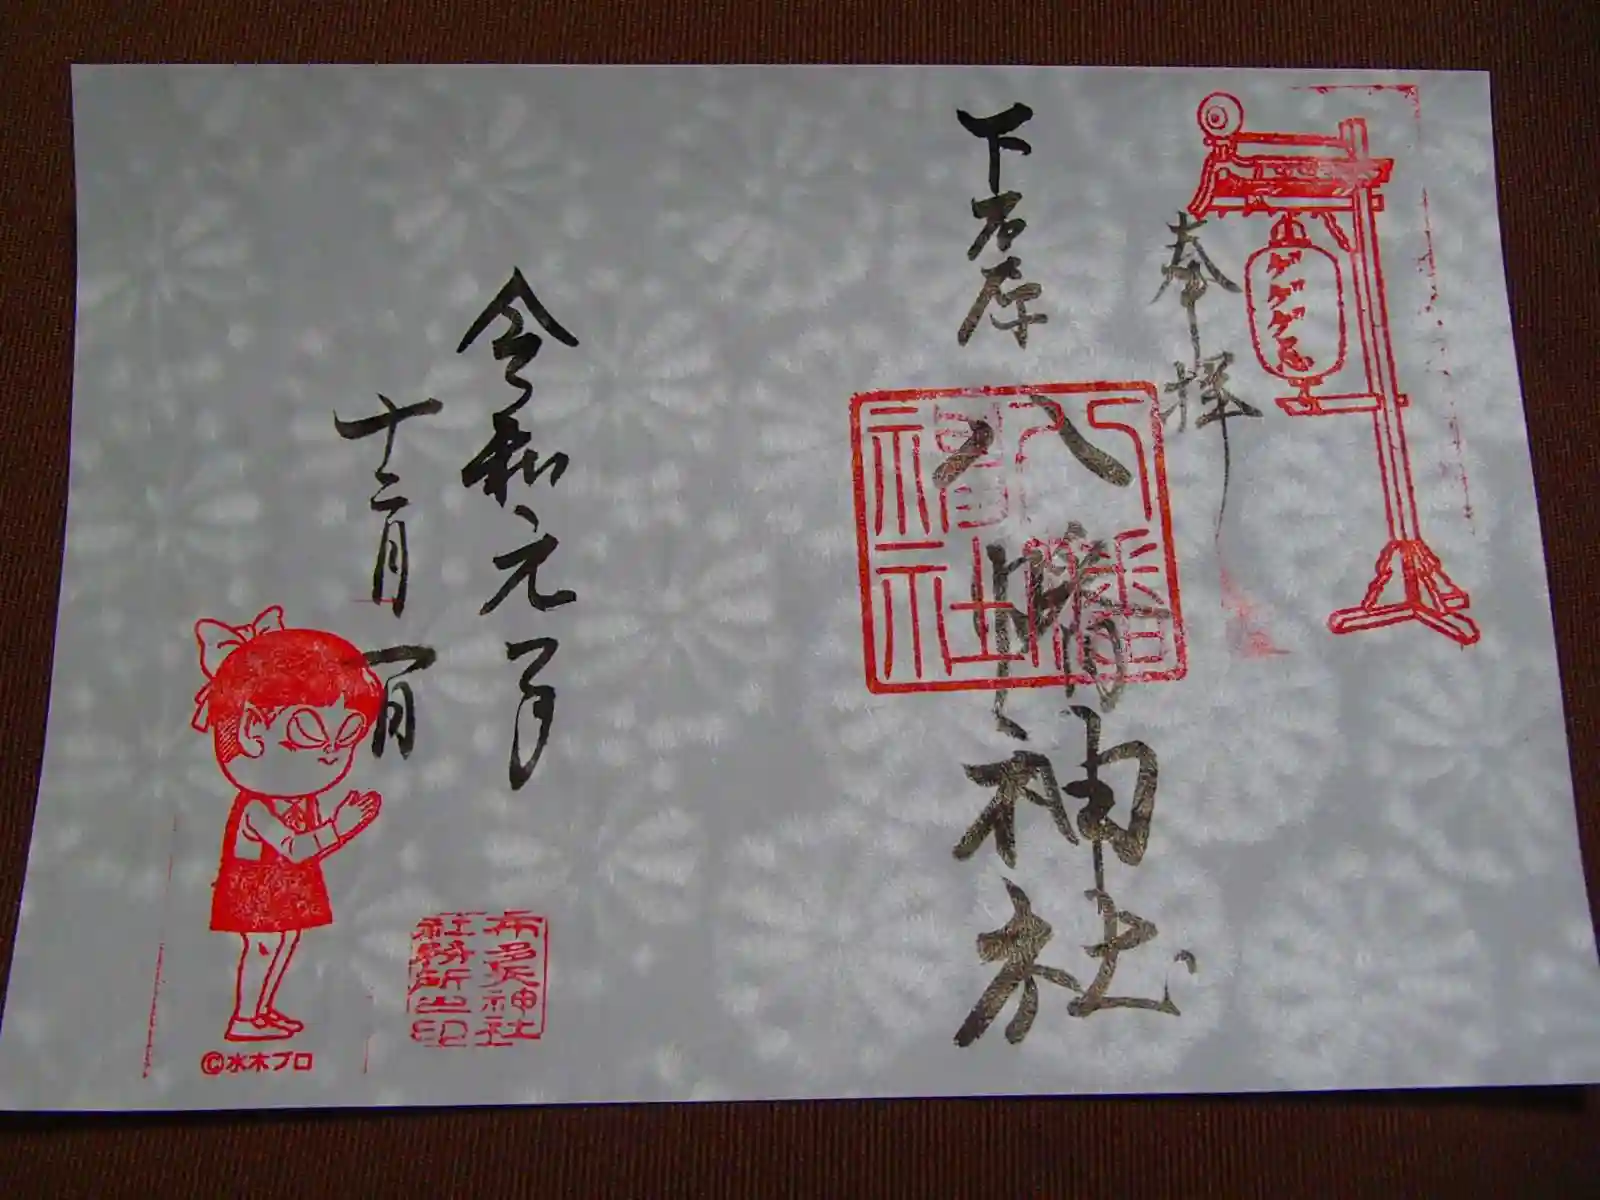 ゲゲゲ忌
奉拝
下石原
八幡神社
八幡神社
令和元年
十二月一日
布多天神社
社務所之印
©水木プロ